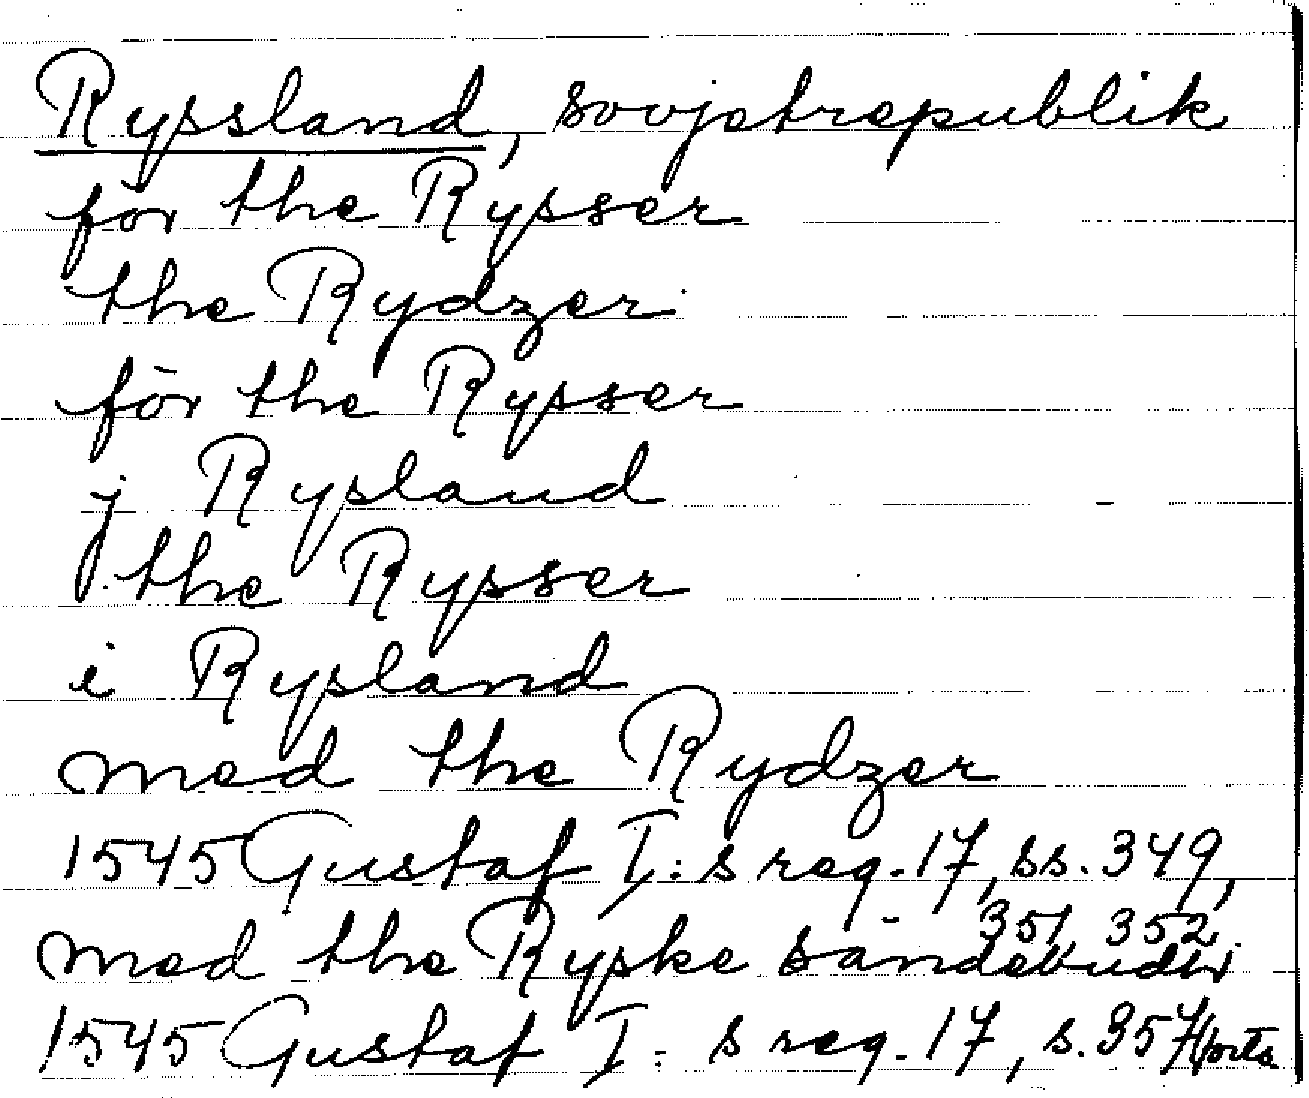 Ryssland, sovjetrepublik
för the Rysser
the Rydzer
för the Rysser
j Rysland
the Rysser
i Rysland
med the Rydzer
1545 Gustaf I:s reg. 17, ss. 349,
351, 352,
med the Ryske sändebuder
1545 Gustaf I:s reg. 17, s. 357